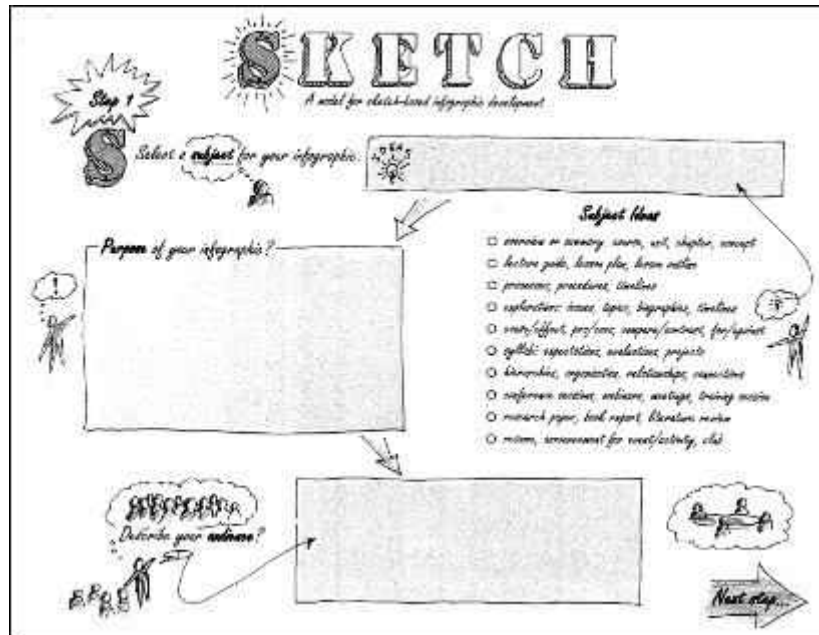 SKETCH
A model for sketch-based infographic development
Step 1
S
Select a subject for your infographic.
Subject Ideas
overview or summary: course, unit, chapter, concept
lecture guide, lesson plan, lesson outline
processes, procedures, timelines
explorations: issues, topics, biographies, timelines
cause/effect, pro/cons, compare/contrast, for/against
syllabi: expectations, evaluations, projects
hierarchies, organization, relationships, connections
conference sessions, webinars, meetings, training session
research paper, book report, literature review
review, announcement for event/activity, club
Purpose of your infographic?
!
Describe your audience?
Next step...